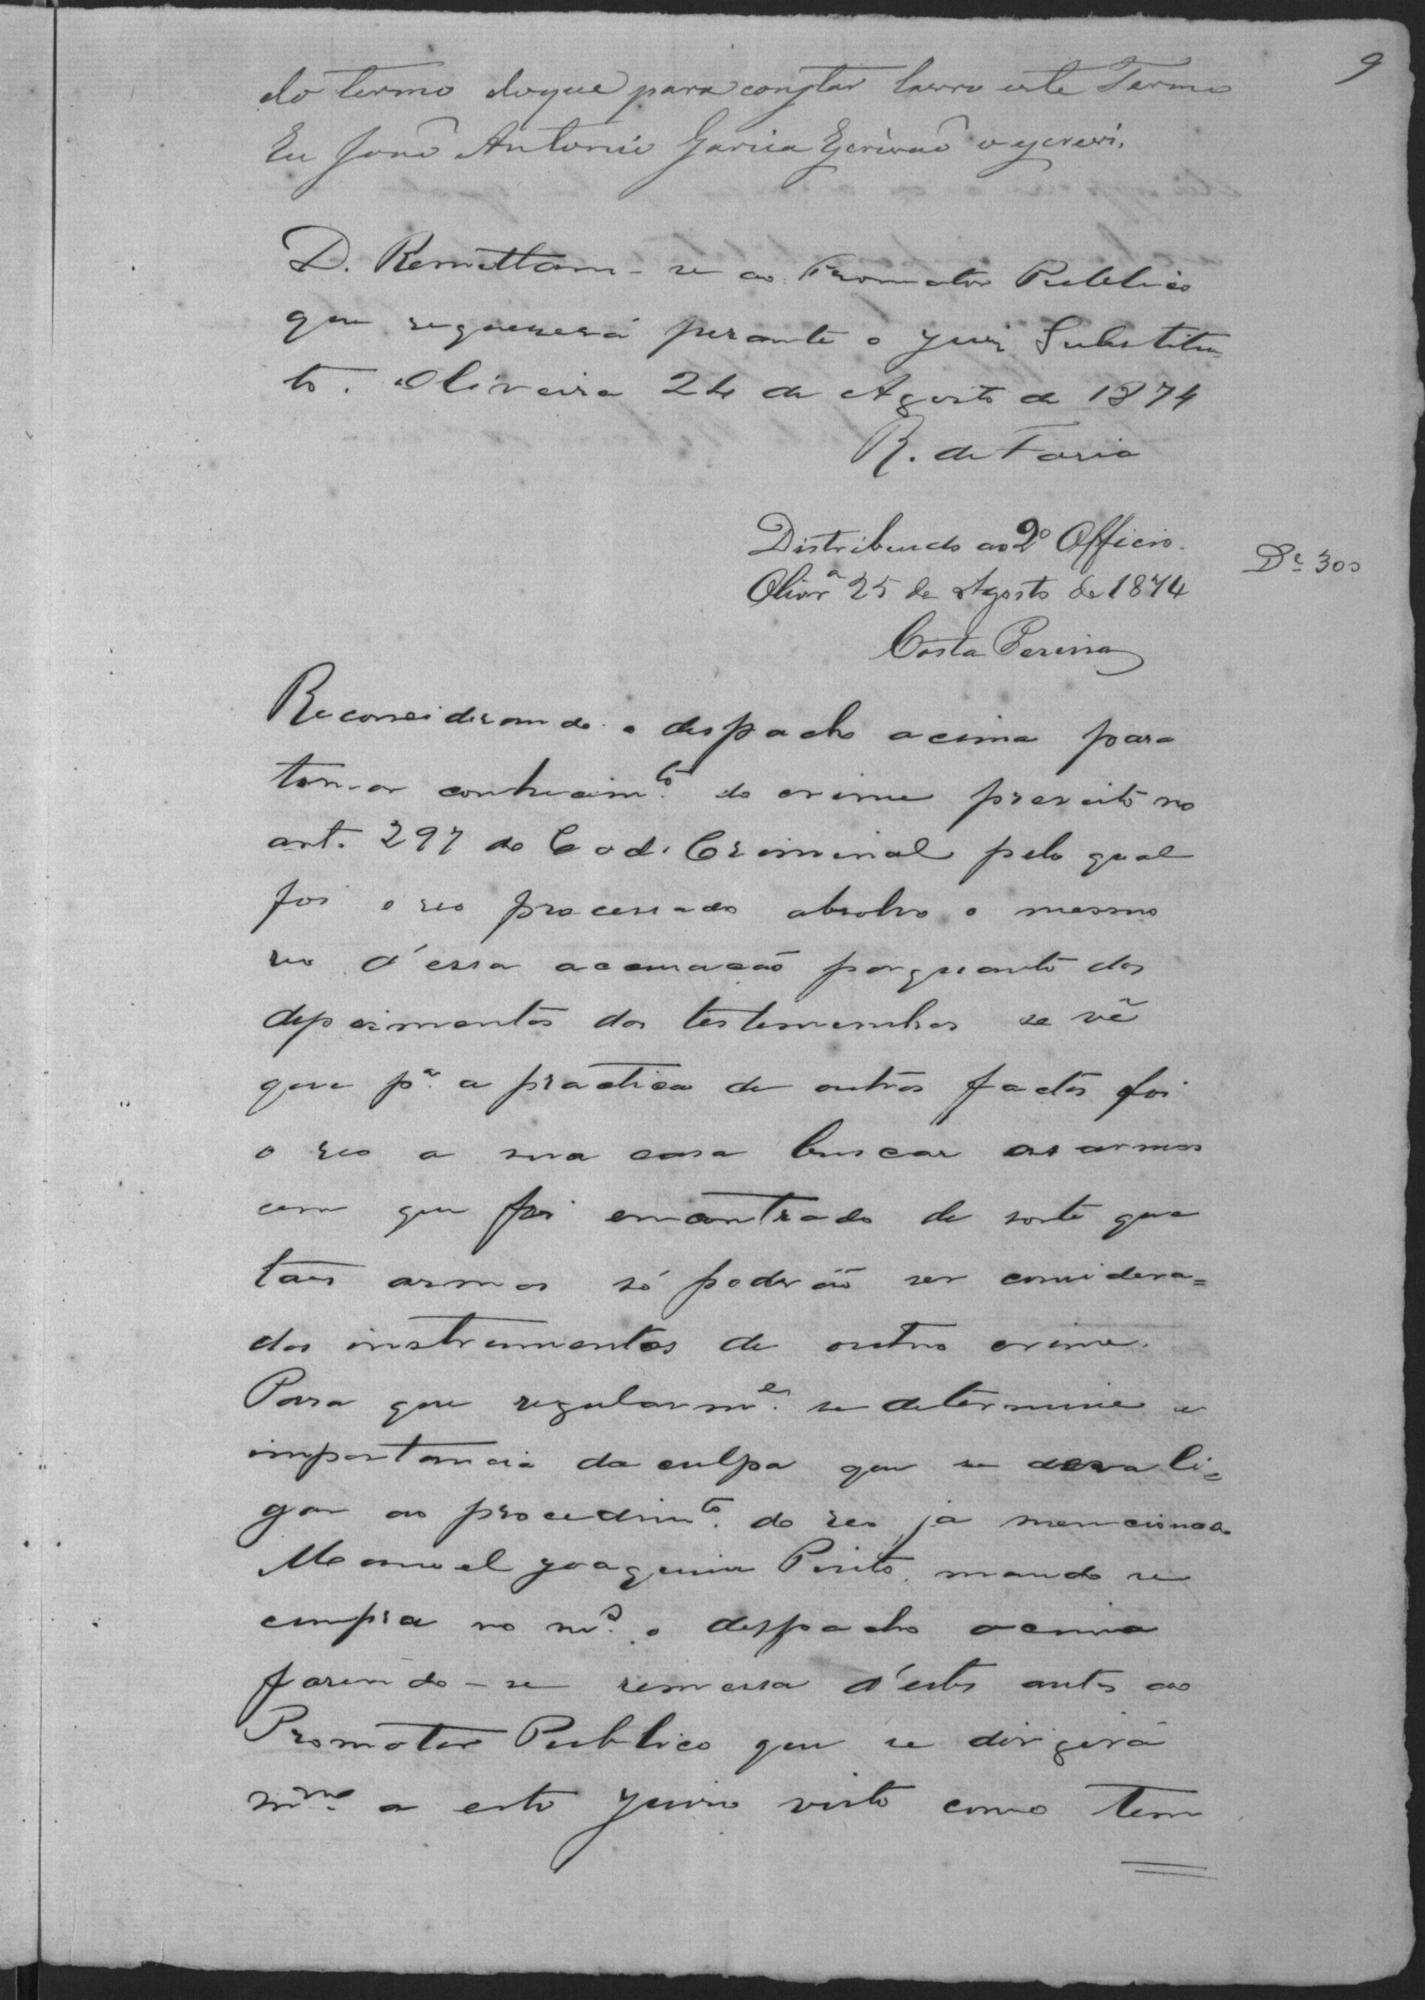 9
do termo doque para constar lavro este Termo
Eu João Antonio Garcia Escrivão o escrevi.
D. Remettam-se ao Promotor Publico
que requererá perante o Juiz Substitu-
to. Oliveira 24 de Agosto de 1874
R. de Faria
Distribuido ao 2º Officio.
Olivrª 25 de Agosto de 1874
Costa Pereira
Dº 300
Reconsiderando o despacho acima para
tomar conhecimto. do crime previsto no
art. 297 do Cod. Criminal pelo qual
foi o reo processado absolvo o mesmo
reo d'essa accusação porquanto dos
depoimentos das testemunhas se vê
que pª. a practica de outros factos foi
o reo a sua casa buscar as armas
com que foi encontrado de sorte que
taes armas só poderão ser considera=
das instrumentos de outro crime.
Para que regularme. se determine a
importancia da culpa que se deva li=
gar ao procedimto. do reo já menciona
Manoel Joaquim Pinto, mando se
cumpra no mº. o despacho acima
fasendo-se remessa d'estes autos ao
Promotor Publico que se dirigirá
mmo. a este Juizo visto como tem